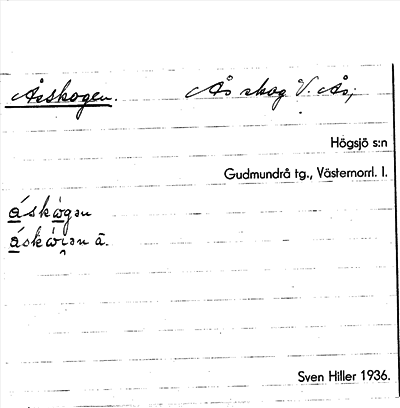 Åsskogen. Ås skog V. Ås;
Högsjö s:n
Gudmundrå tg., Västernorrl. l.
áskẁgən
áskẁi̯ən ā.
Sven Hiller 1936.